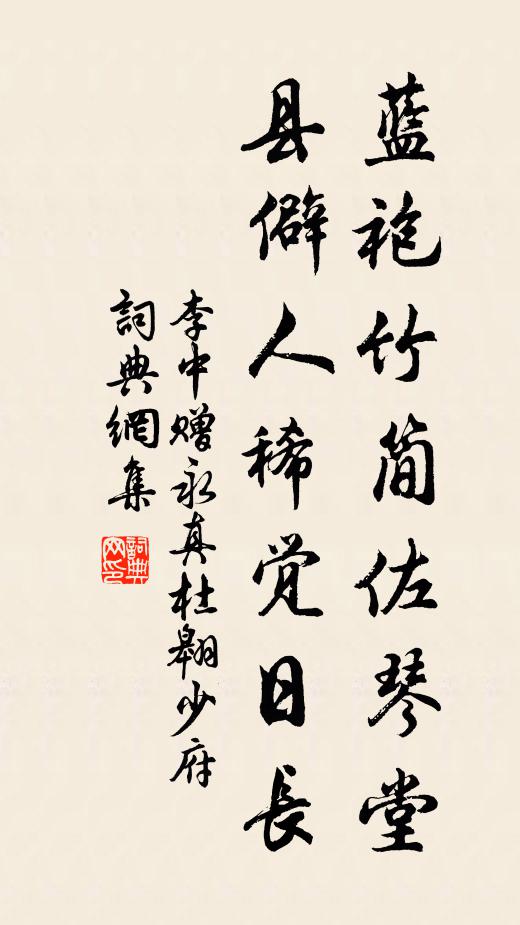 蓝袍竹简佐琴堂
县僻人稀觉日長
李中赠永真杜翱少府
詞典網集
詞典網印